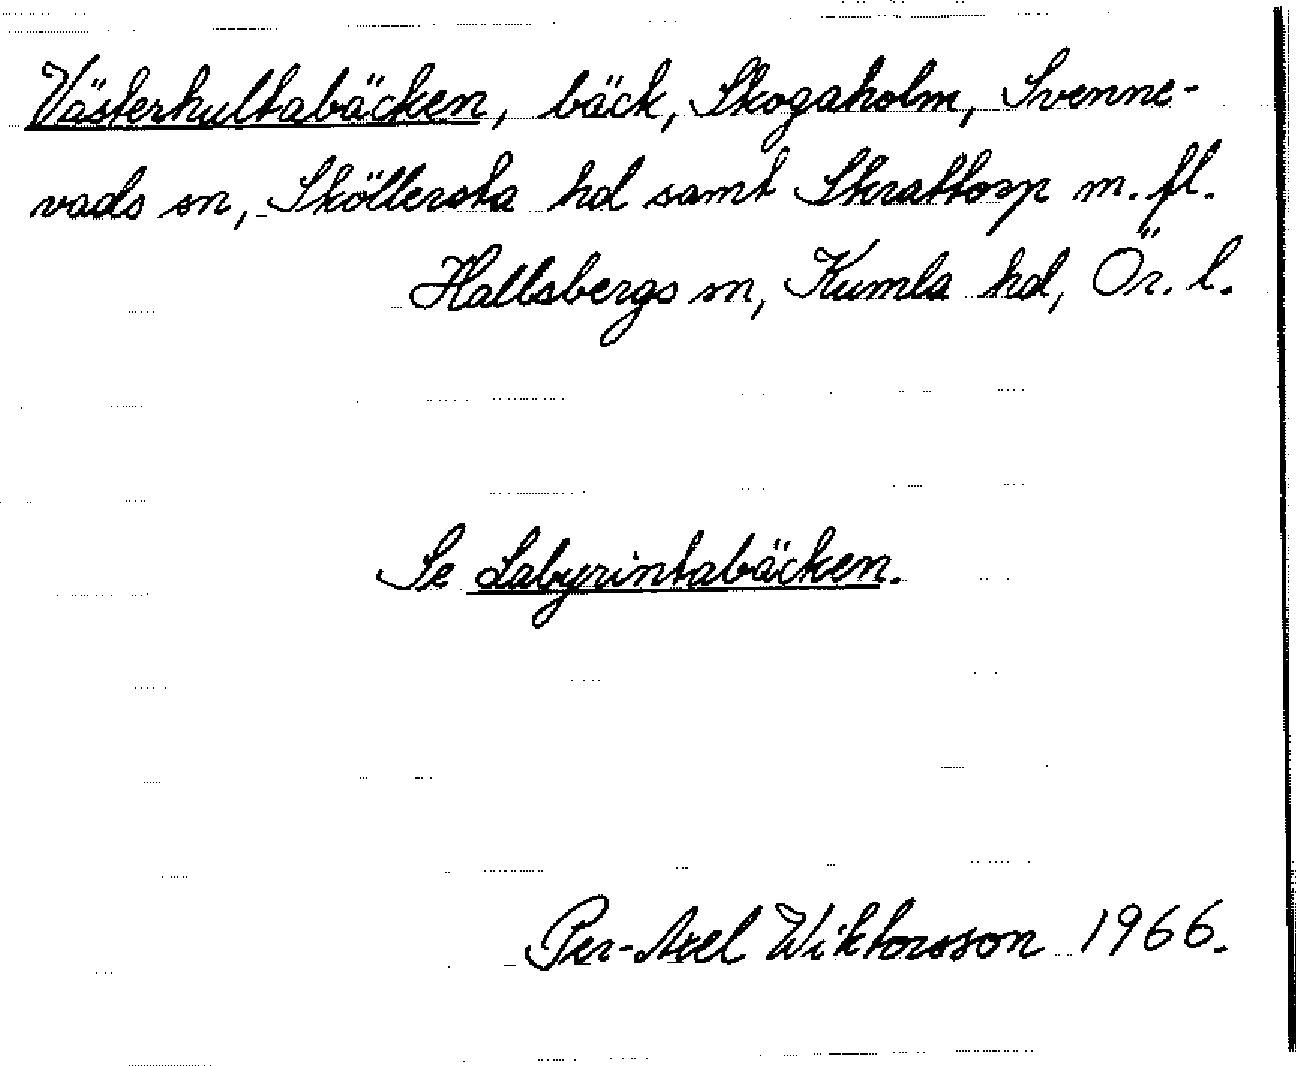 Västerhultabäcken, bäck, Skogaholm, Svenne-
vads sn, Sköllersta hd samt Skrattorp m. fl.
Hallsbergs sn, Kumla hd, Ör. l.
Se Labyrintabäcken.
Per-Axel Wiktorsson 1966.